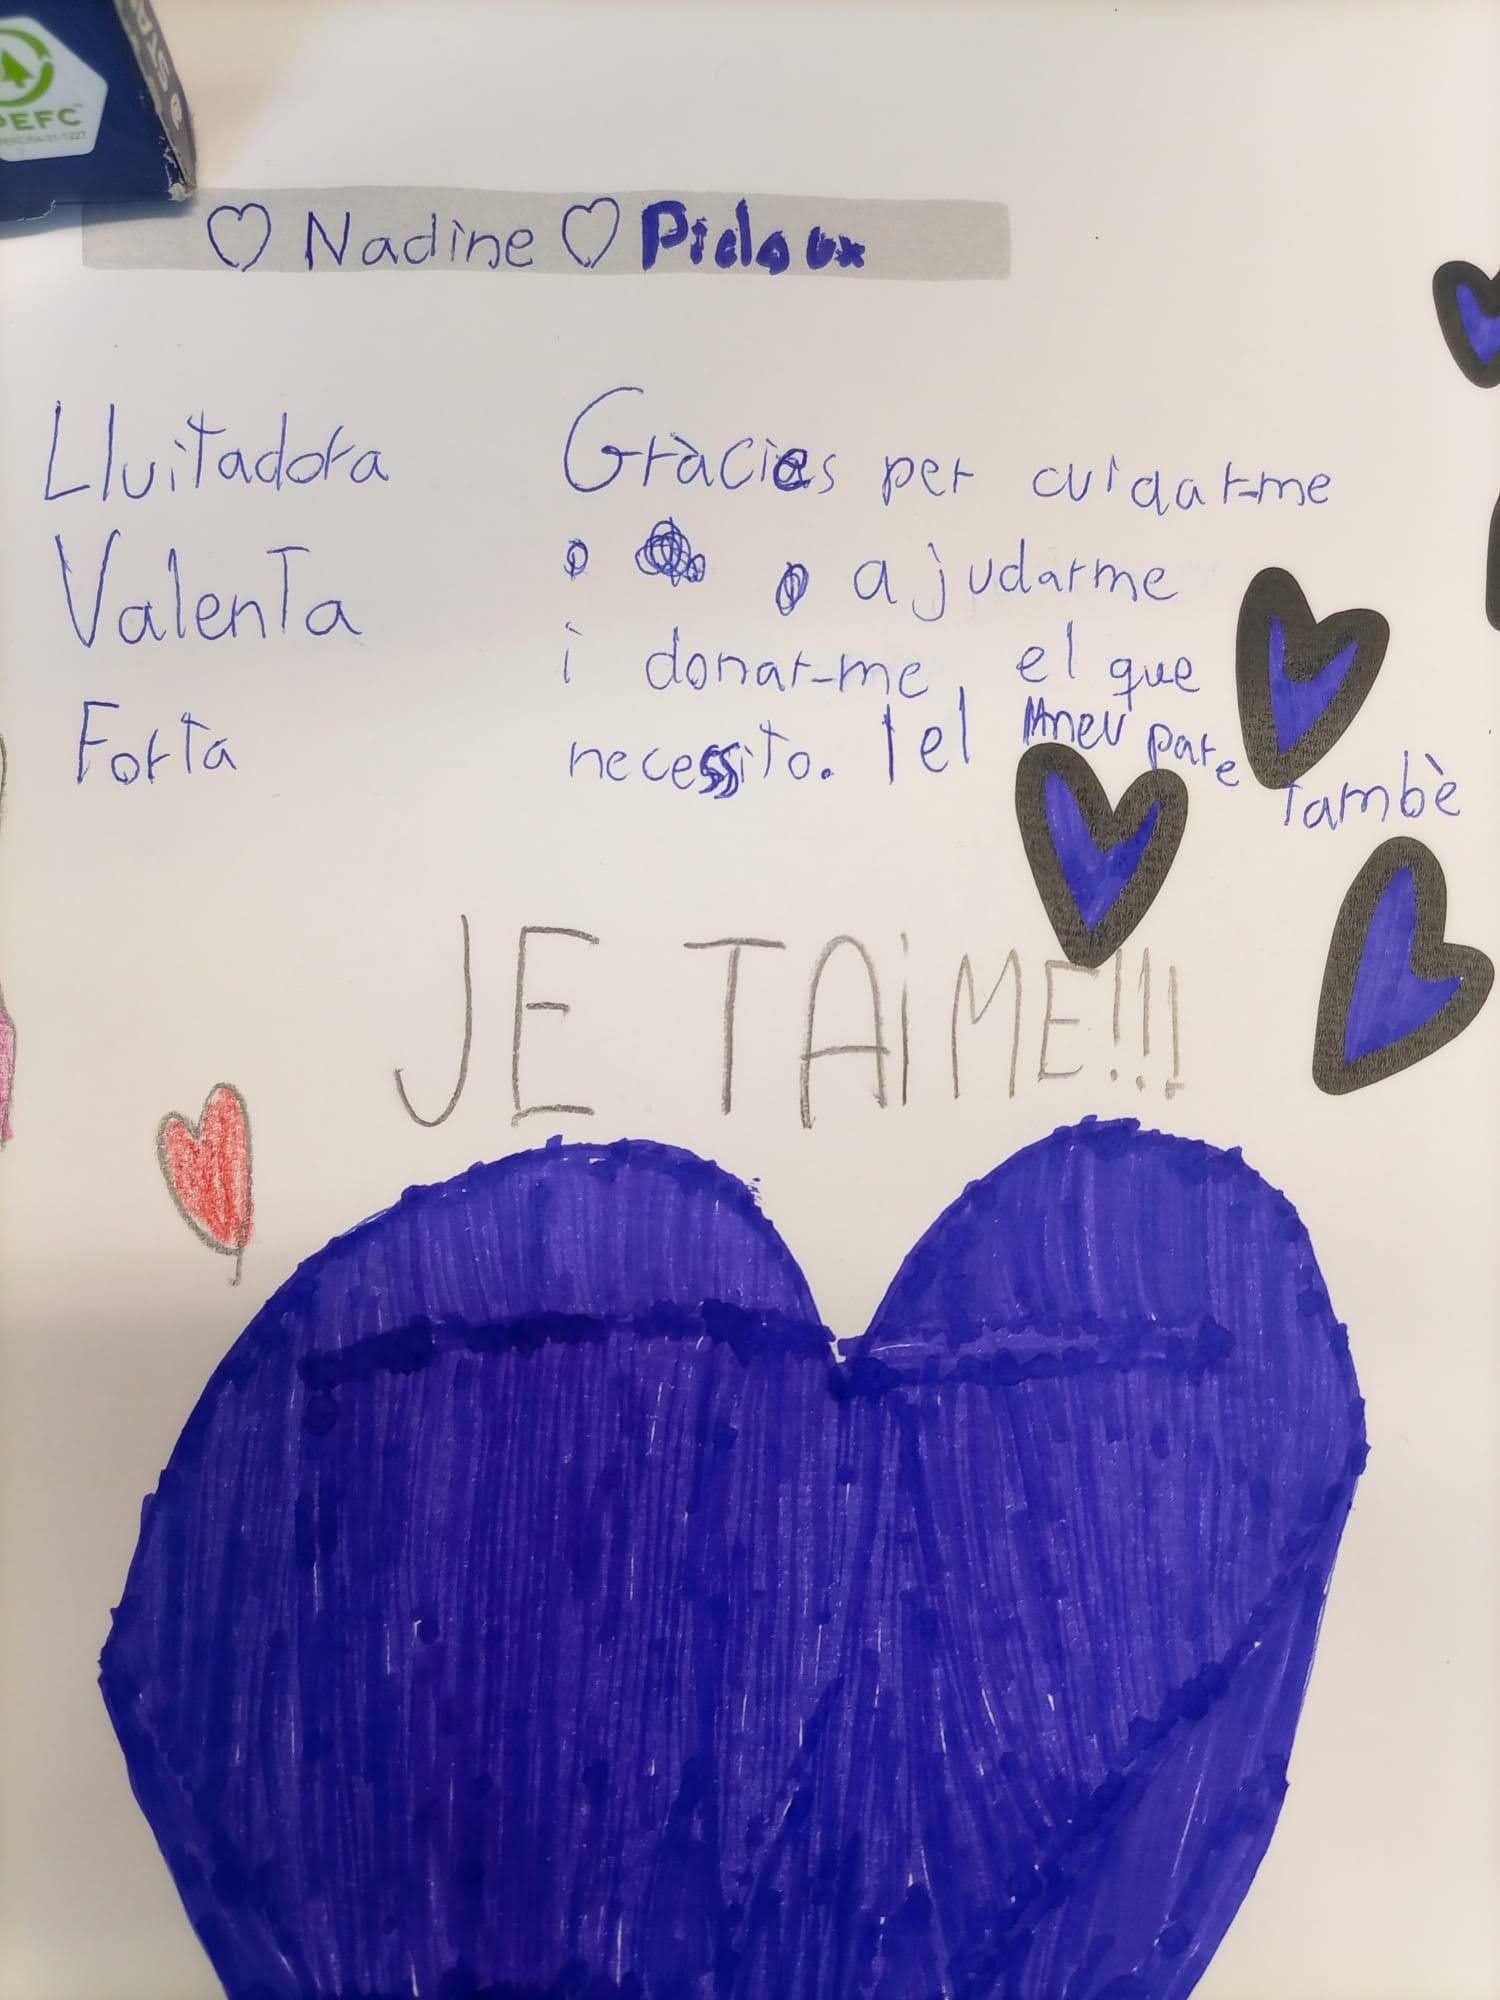 PEFC
STA
♡ Nadine ♡ Pidoux
Lluitadora
Valenta
Forta
Gràcies per cuidar-me
ajudarme
i donar-me, el que
necessito. I el meu pare també
JE TAiME!!!